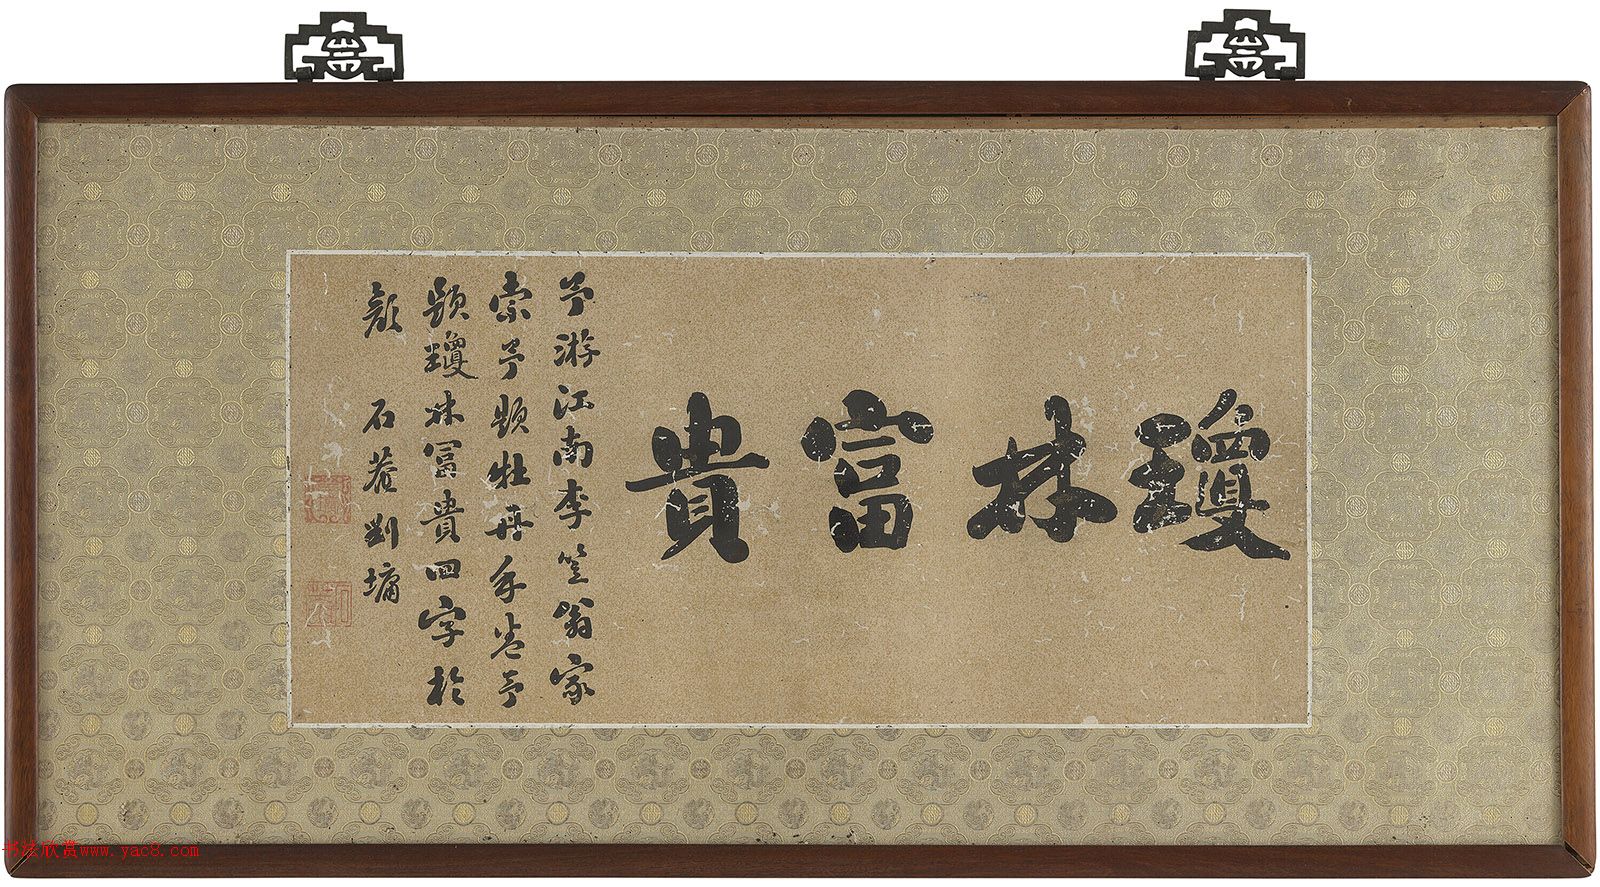 瓊林富貴
予游江南李笠翁家
索予題牡丹手卷予
題瓊林富貴四字於
顏 石菴劉墉
书法欣赏www.yac8.com